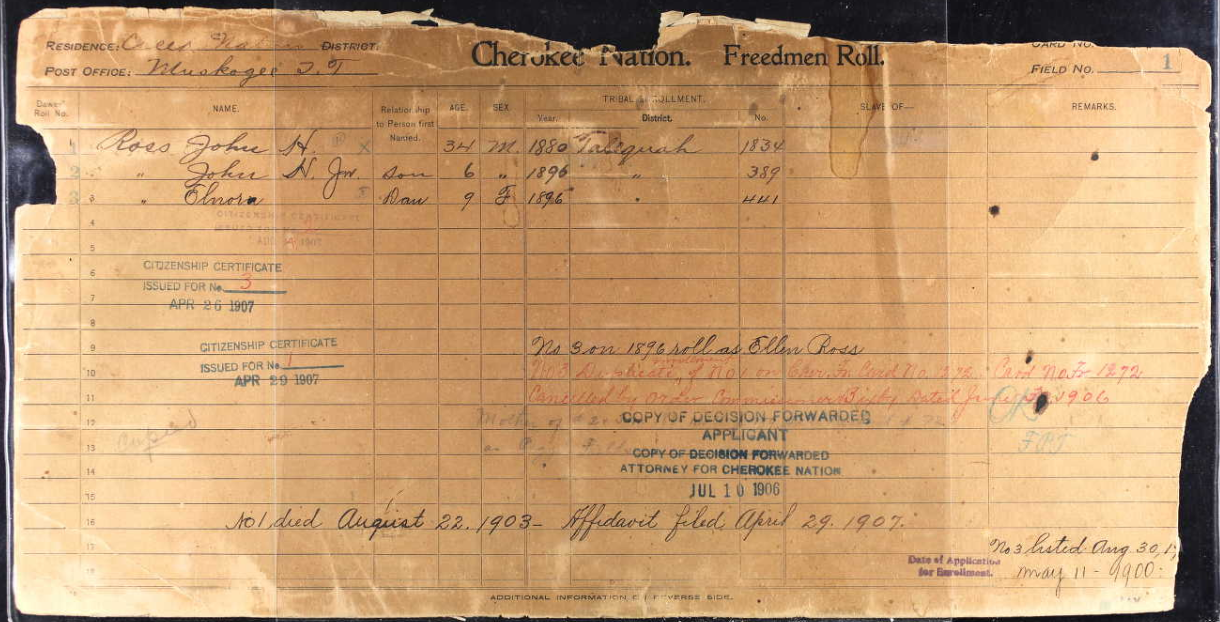 RESIDENCE: DISTRICT.
Cherokee Nation. Freedmen Roll.
CARD NO.
POST OFFICE: Muskogee I.T.
FIELD NO. 1
Dawes' Roll No.
NAME.
Relationship to Person first Named.
AGE.
SEX
TRIBAL ENROLLMENT.
Year. District. No.
SLAVE OF—
REMARKS.
1 Ross John H. X 34 M. 1880 Talequah 1834
2 " John H. Jr. son 6 " 1896 " 389
3 " Elnora Dau 9 F 1896 " 441
4
5
6
7
8
9
10
11
12
13
14
15
16
17
CITIZENSHIP CERTIFICATE
ISSUED FOR No. 3
APR 26 1907
CITIZENSHIP CERTIFICATE
ISSUED FOR No. 1
APR 29 1907
No 3 on 1896 roll as Ellen Ross
No 3 Duplicate enrollment of No 1 on Cher. Fr. Card No. 1272. Card No. Fr 1272
Cancelled by order Commissioner Bixby Dated 1906
Mother of
COPY OF DECISION FORWARDED
APPLICANT
COPY OF DECISION FORWARDED
ATTORNEY FOR CHEROKEE NATION
JUL 10 1906
No 1 died August 22. 1903- Affidavit filed April 29. 1907.
No 3 listed Aug 30,
Date of Application
for Enrollment.
May 11 - 1900.
ADDITIONAL INFORMATION ON REVERSE SIDE.